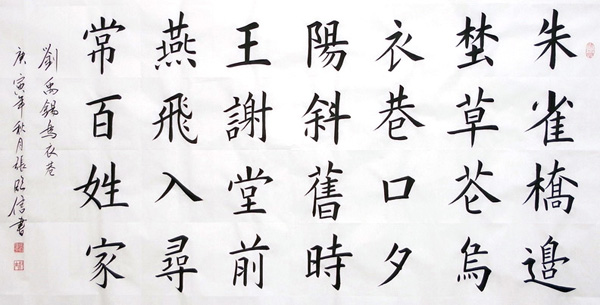 朱雀橋邊
埜草花烏
衣巷口夕
陽斜舊時
王謝堂前
燕飛入尋
常百姓家
劉禹錫烏衣巷
庚寅年秋月張信書